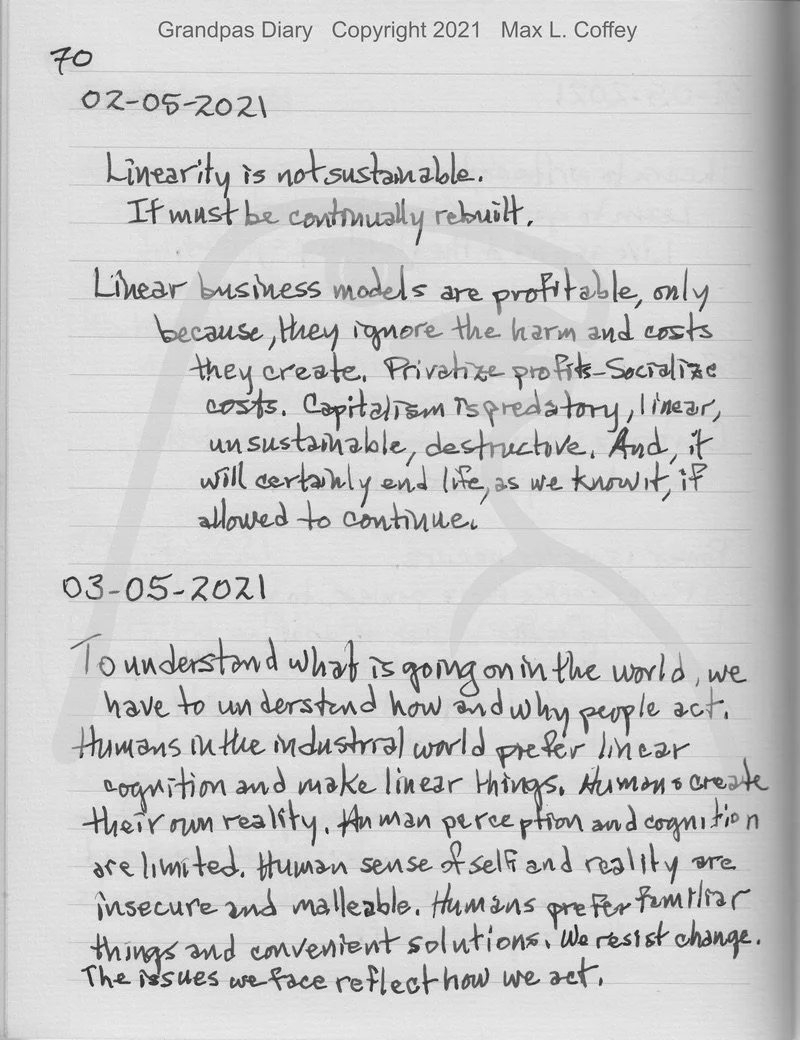 Grandpas Diary Copyright 2021 Max L. Coffey
70
02-05-2021
Linearity is not sustainable.
It must be continually rebuilt.
Linear business models are profitable, only
because, they ignore the harm and costs
they create. Privatize profits-Socialize
costs. Capitalism is predatory, linear,
unsustainable, destructive. And, it
will certainly end life, as we know it, if
allowed to continue.
03-05-2021
To understand what is going on in the world, we
have to understand how and why people act.
Humans in the industrial world prefer linear
cognition and make linear things. Humans create
their own reality. Human perception and cognition
are limited. Human sense of self and reality are
insecure and malleable. Humans prefer familiar
things and convenient solutions. We resist change.
The issues we face reflect how we act.